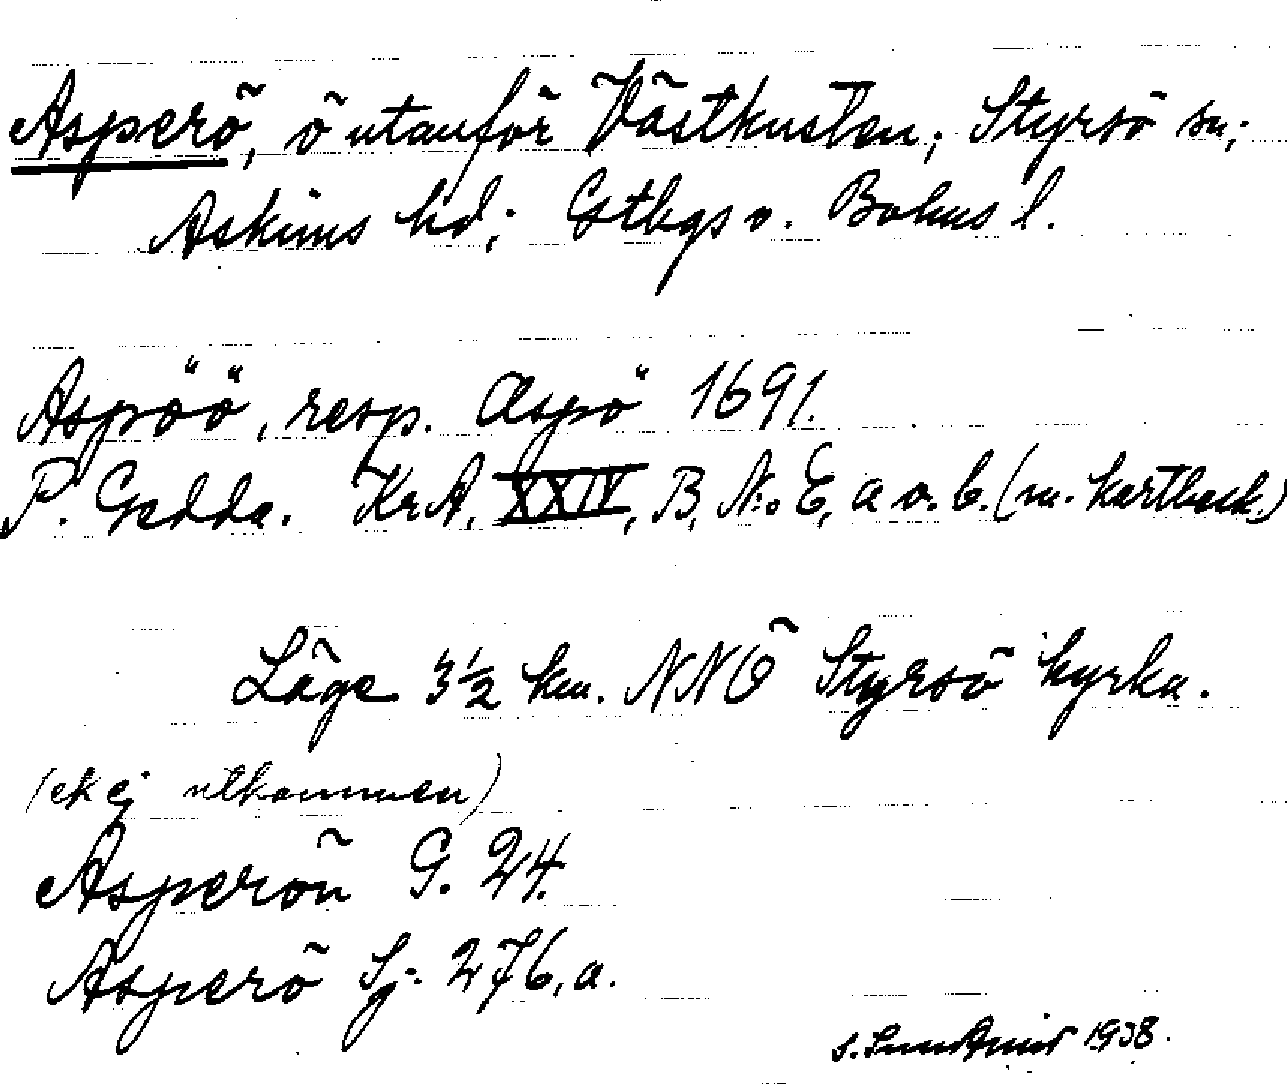 Asperö, ö utanför Västkusten; Styrsö sn;
Askims hd; Gtbgs o. Bohus l.
Aspöö, resp. Œspö 1691.
P. Gedda. KrA, XXIV, B, No 6, a o. b. (m. kartbeskr.)
Läge 3½ km. NNÖ Styrsö kyrka.
(ek ej utkommen)
Asperön G. 24.
Asperö Sj. 276, a.
S. Lundkvist 1938.